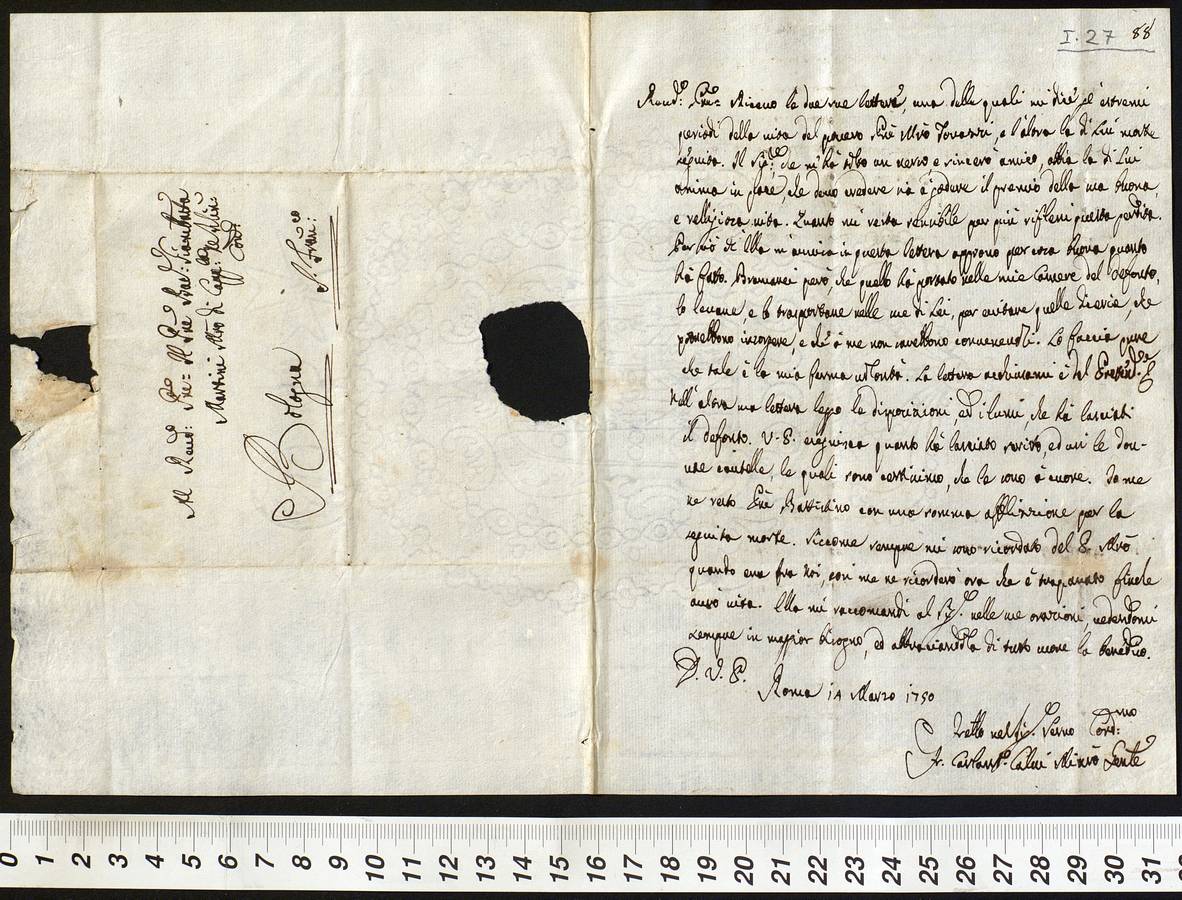 I. 27 88
Al Rend: P.re P.ron Il P.re Bac: Giambatta
Martini Mro di Capp:la de Min:
Conv:
S. Fran:co
Bologna
Rend: P.re Ricevo le due sue lettere, una delle quali mi dice gl'estremi
periodi della vita del povero P.re Mro
seguita. Il Sig.re, che mi ha tolto un vero e sincero amico, abbia la di Lui
anima in pace, che devo credere sia a godere il premio della sua buona,
e religiosa vita. Quanto mi resta sensibile per più riflessi questa perdita.
Per ciò di Ella mi avvisa in questa lettera approvo per cosa buona quanto
ha fatto. Bramarei però, che quello ha portato nelle mie Camere del defonto,
lo levasse e lo trasportasse nelle sue di Lei, per evitare quelle dicerie, che
potrebbono insorgere, e che a me non sarebbono convenevoli. Lo faccia pure
che tale è la mia ferma volontà. La lettera acchiusami è del
Nell'altra sua lettera leggo le disposizioni, ed i lumi, che ha lasciati
il defonto. V. P. eseguisca quanto ha lasciato scritto, ed usi le dov-
ute cautelle, le quali sono certissimo, che le sono a cuore. Io me
ne resto P.re Battistino con una somma afflizione per la
seguita morte. Siccome sempre mi sono ricordato del P. Mro
quando era fra noi, così me ne ricorderò ora che è trapassato
vita. Ella mi raccomandi al Sig.re nelle sue orazioni, vedendomi
sempre in maggior bisogno, ed abbracciandola di tutto cuore la benedico.
D. V. P.
Roma 14 Marzo 1750
nel Sig.re Servo
Fr. Carlant.o Calvi Minro Genle